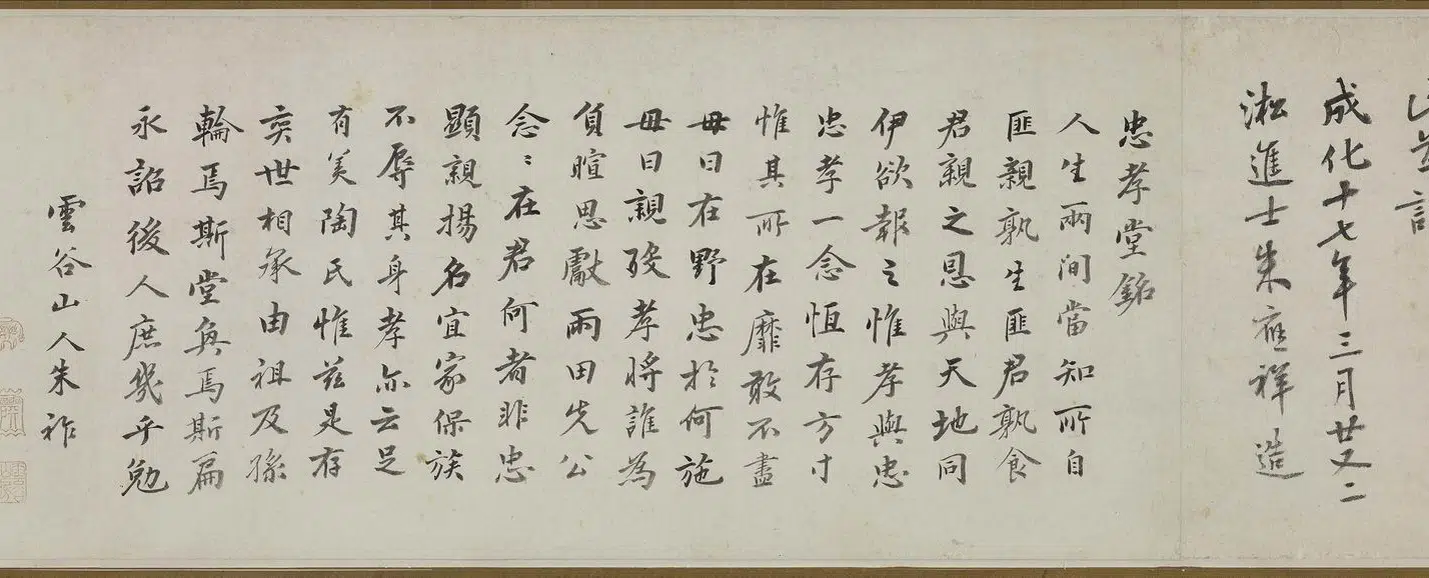 成化十七年三月廿又二
淞進士朱應祥造
忠孝堂銘
人生兩間當知所自
匪親孰生匪君孰食
君親之恩與天地同
伊欲報之惟孝與忠
忠孝一念恒存方寸
惟其所在靡敢不盡
毋曰在野忠於何施
毋曰親歿孝將誰為
負暄思獻雨田先公
念〻在君何者非忠
顯親揚名宜家保族
不辱其身孝亦云足
有美陶氏惟茲是存
奕世相承由祖及孫
輪焉斯堂奐焉斯扁
永詔後人庶幾乎勉
雲谷山人朱祚